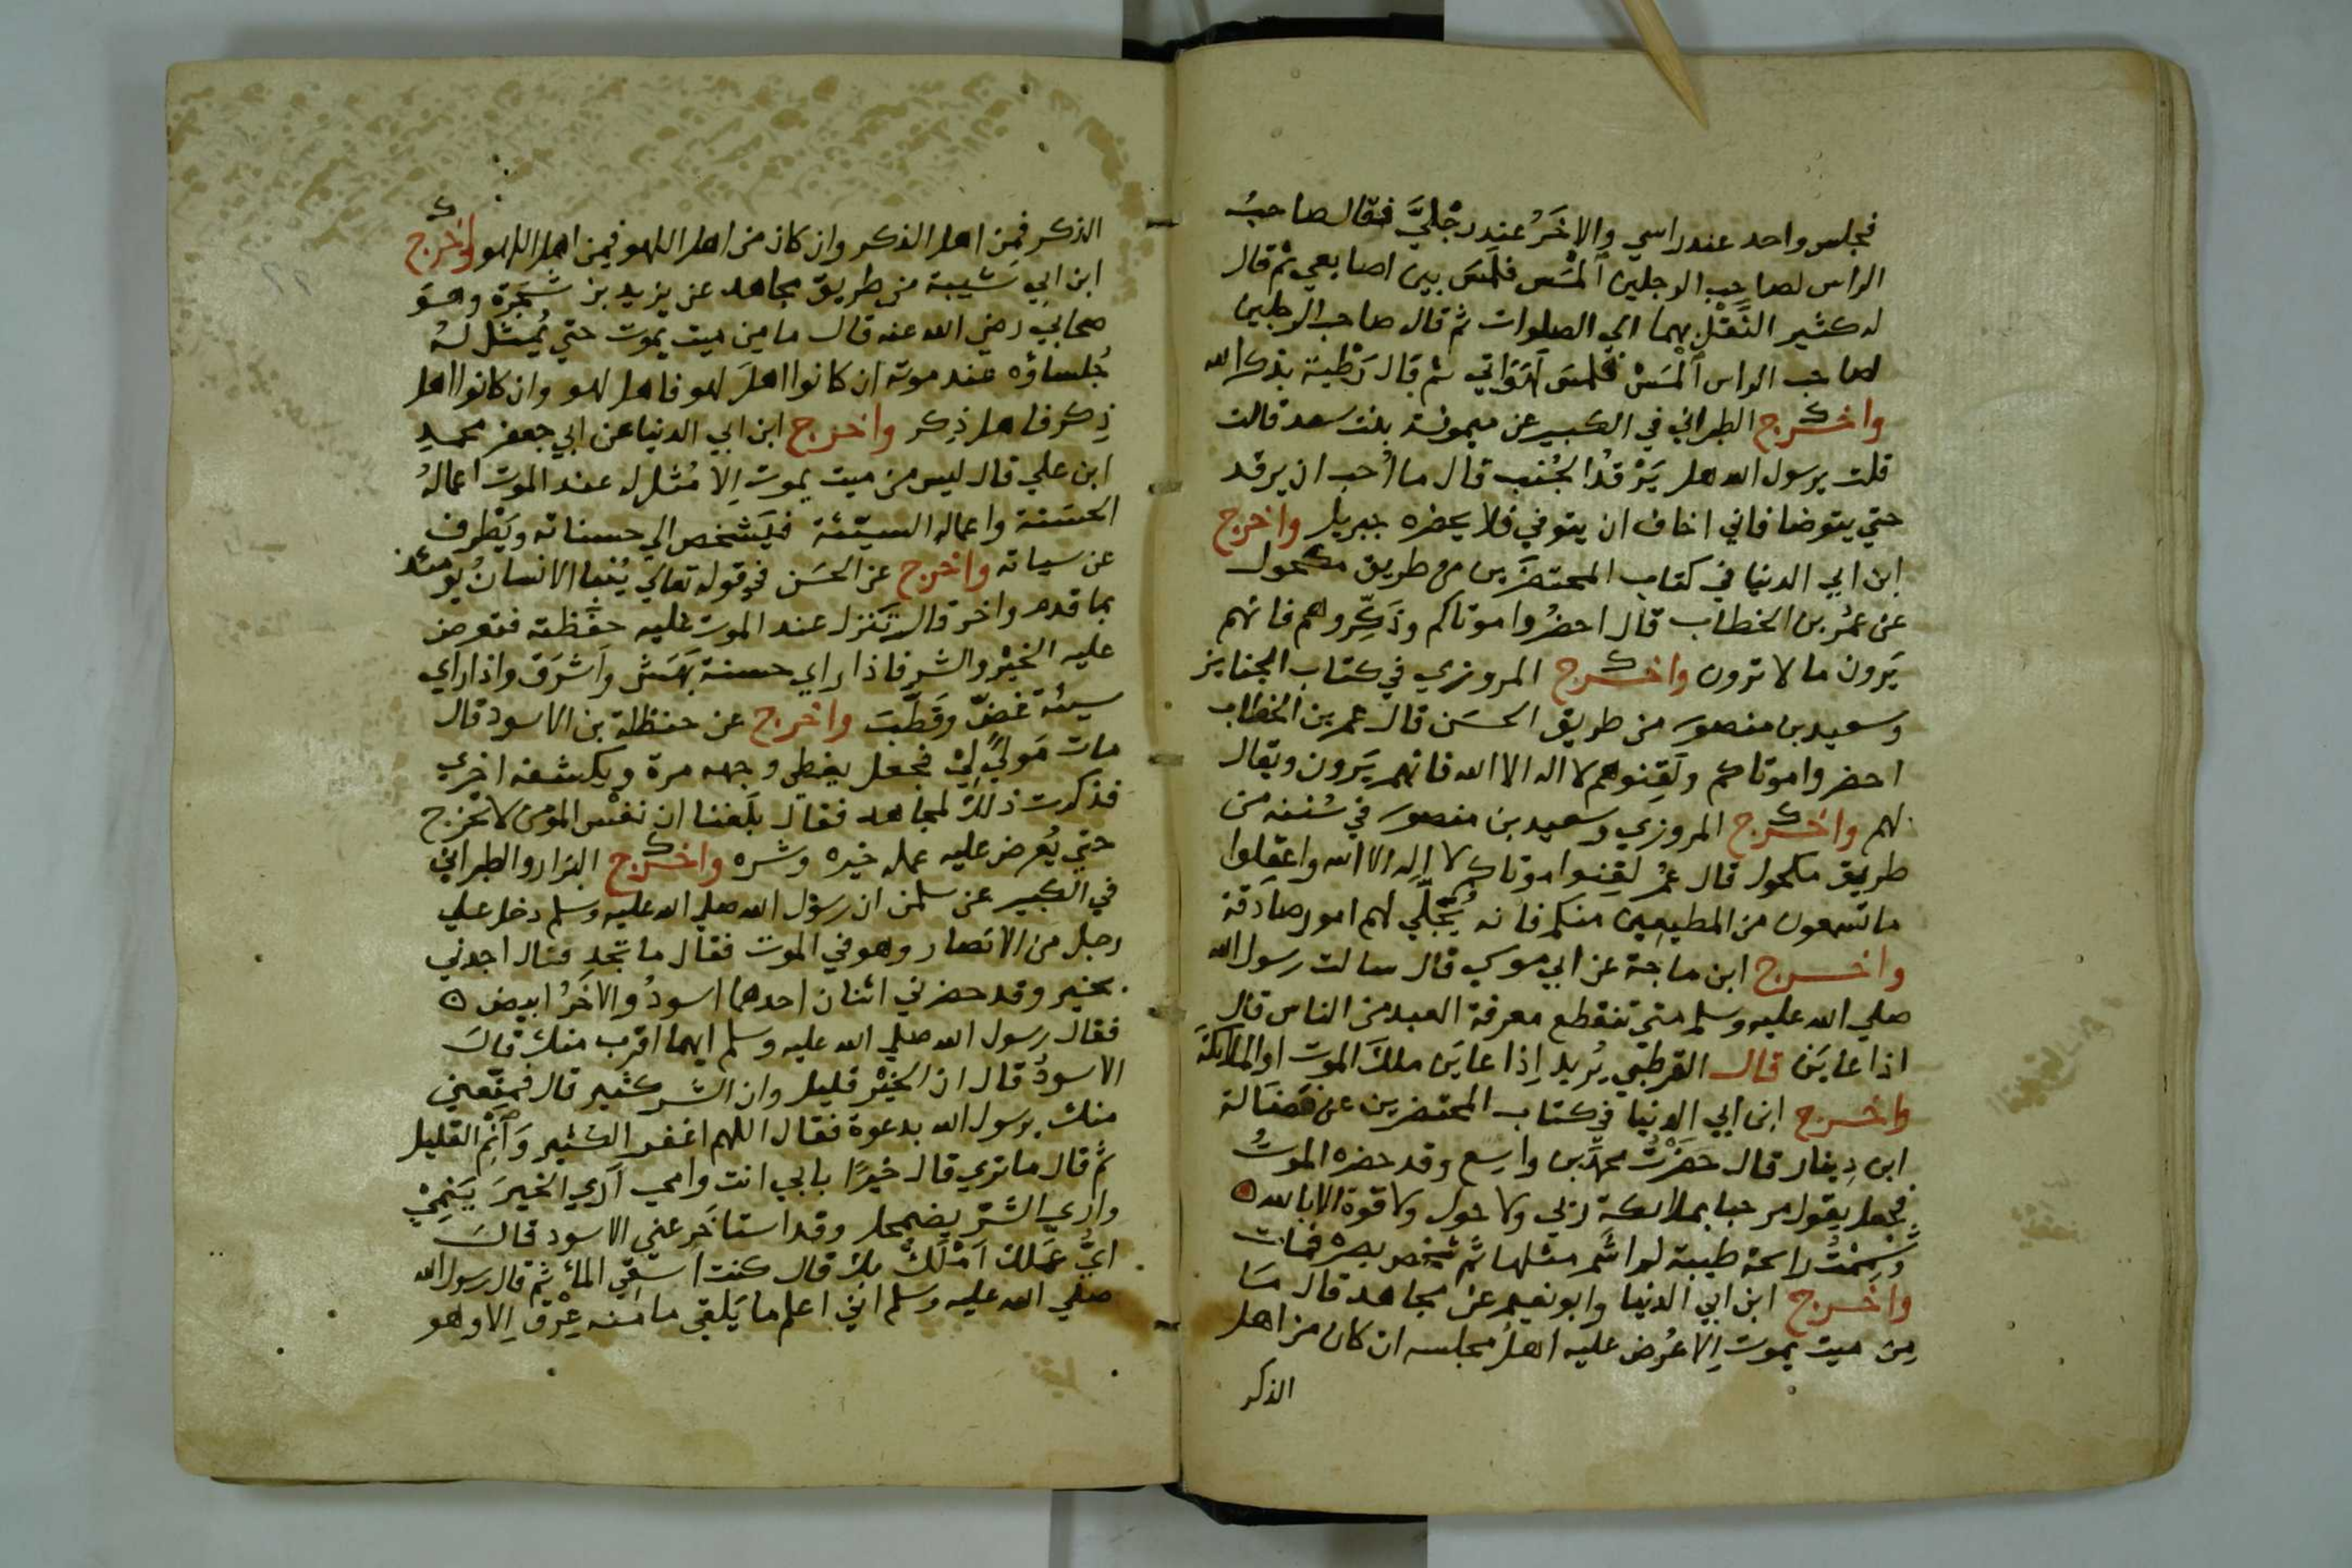 فجلس واحد عند راسي والاخَرُ عند رجْليَّ فقال صاحبُ
الراس لصاحب الرجلين اَلْمَسَ فلمَسَ بين اصابعي ثم قال
له كثير النَّقْلِ بهما الي الصلوات ثم قال صاحب الرجلين
لصاحب الراس اَلْمَسْ فلمسَ لَهَوَاتي ثم قال رَطْبة بذكر الله
واخرج الطبراني في الكبير عن ميمونة بنت سعد قالت
قلت يرسول الله هل يَرْقدُ الجُنب قال ما اُحب ان يرقد
حتي يتوضا فاني اخاف ان يتوفي فلا يحضره جبريل واخرج
ابن ابي الدنيا في كتاب المحتضَرين من طريق مكحول
عن عمُر بن الخطاب قال احضُروا موتاكم وذَكِّروهم فانهم
يَرون ما لا ترون واخرج المروزي في كتاب الجنايز
وسعيد بن منصور من طريق الحسَن قال عمر بن الخطاب
احضروا موتاكم ولَقِنوهم لا اله الا الله فانهم يَرون ويقال
لهم واخرج المروزي وسعيد بن منصور في سُننه من
طريق مكحول قال عمُر لقِنوا موتاكم لا اِله الا الله واعقِلوا
ما تسمعون من المطيعِين منكم فانه يُجَلّي لهم امور صادقة
واخرج ابن ماجة عن ابي موسي قال سالت رسول الله
صلي الله عليه وسلم متي تنقطع معرفة العبد من الناس قال
اذا عايَن قال القرطبي يُريد اِذا عايَن ملكَ الموت او الملائكةَ
واخرج ابن ابي الدنيا في كتاب المحتضرين عن فَضَالة
ابن دِينار قال حَضَرْتُ محمَّد بن واسِع وقد حضره الموتُ
فجعل يقول مرحبا بملائكة ربي ولا حول ولا قوة الا بالله
وَشَمِمْتُ رائحة طيبة لم اشَم مثلها ثم شخص بصره فمات
واخرج ابن ابي الدنيا وابو نعيم عن مجاهد قال مَا
مِن ميت يموت اِلا عُرض عليه اهلُ مجلسه ان كان من اهل
الذكر
الذكر فمِن اهل الذكر وان كان من اهل اللهو فمِن اهل اللهو واخرج
ابن ابي شيبة من طريق مجاهد عن يزيد بن شَجَرَة وهوَ
صحابي رضي الله عنه قال ما مِن ميت يموت حتي يُمثل لهُ
جُلساؤه عند موته ان كانوا اهلَ لهو فاهل لهو وان كانوا اهل
ذِكر فاهل ذِكر واخرج ابن ابي الدنيا عن ابي جعفر محمدِ
ابن علي قال ليس من ميت يموت اِلا مُثل له عند الموت اعمالهُ
الحسَنة واعماله السيّئة فيَشخص الي حسناته ويَطْرف
عن سياته واخرج عن الحسَن في قوله تعالي يُنبا الانسانُ يومئذ
بما قدم واخر قال تَنزل عند الموت عليه حفَظته فتعرض
عليه الخيْر والشر فاذا راي حسنة بَهَشَ واَشرَق واذا راي
سيئة غضّ وقَطّبَ واخرج عن حنظلة بن الاسود قال
مات مَوليً لِيْ فجعل يغطي وجهه مرة ويكشفه اخري
فذكرت ذلك لمجاهد فقال بلَغنا ان نفْس المؤمن لا تخرج
حتي يُعرض عليه عمله خيره وشره واخرج البزار والطبراني
في الكبير عن سلمن ان رسول الله صلي الله عليه وسلم دخل علي
رجل من الانصار وهو في الموت فقال ما تجد فقال اجدني
بخير وقد حضرني اثنان احدهما اسودُ والاخَرُ ابيض
فقال رسول الله صلي الله عليه وسلم ايهما اقرب منك قالَ
الاسودُ قال ان الخيْر قليل وان الشر كثير قال فمتِّعني
منك يرسول الله بدعوة فقال اللهم اغفر الكثير وَاَنْمِ القليل
ثم قال ما تري قال خيرًا بابي انت وامي اَرَي الخيرَ يَنمِيْ
واري الشرَّ يضمحل وقد استاخَر عني الاسود قالَ
ايُّ عَمَلك اَمْلَكُ بك قال كنت اسقي الماء ثم قال رسول الله
صلي الله عليه وسلم اني اعلم ما يَلقي ما منه عِرْق اِلا وهو